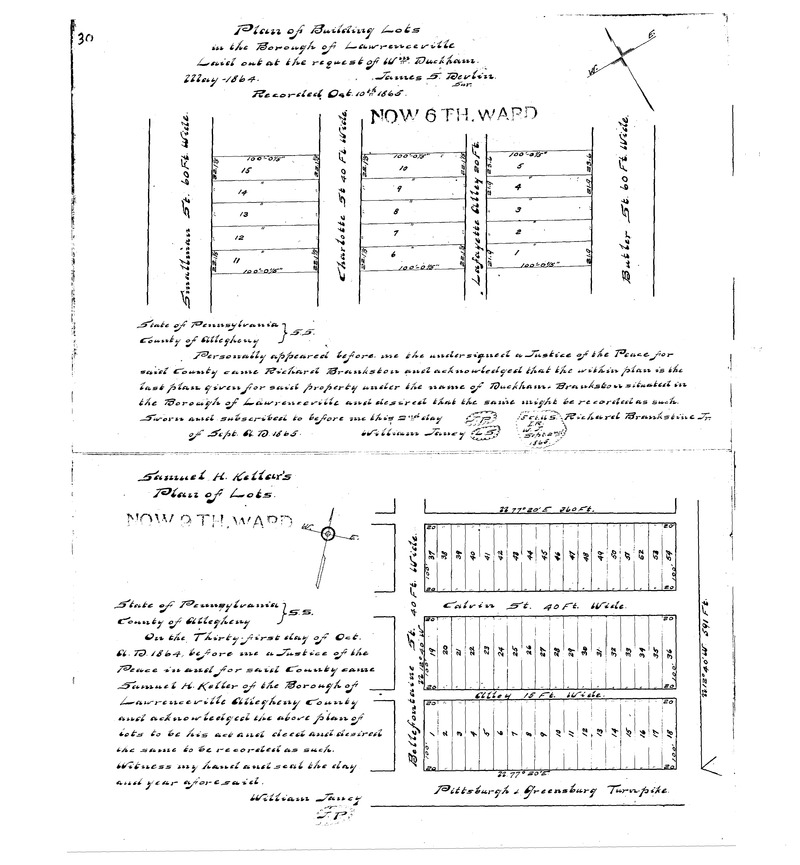 30
Plan of Building Lots
in the Borough of Lawrenceville
Laid out at the request of Wm. Duckham.
May - 1864. James S. Devlin.
Sur.
Recorded Oct. 10th 1865.
W. E.
NOW 6TH. WARD
Smallman St. 60 Ft Wide.
Charlotte St 40 Ft Wide.
Lafayette Alley 20 Ft.
Butler St. 60 Ft Wide.
100'-0⅛" 100'-0⅛" 100'-0⅛"
15 10 5
14 9 4
13 8 3
12 7 2
11 6 1
100'-0⅛" 100'-0⅛" 100'-0⅛"
State of Pennsylvania
County of Allegheny } S.S.
Personally appeared before me the undersigned a Justice of the Peace for
said County came Richard Brankston and acknowledged that the within plan is the
last plan given for said property under the name of Duckham. Brankston situated in
the Borough of Lawrenceville and desired that the same might be recorded as such.
Sworn and subscribed to before me this 2nd day J.P. Richard Brankstine Jr.
of Sept. A.D. 1865. William Janey L.S.
Samuel H. Keller's
Plan of Lots.
NOW 9TH. WARD
W. E.
State of Pennsylvania
County of Allegheny } S.S.
On the Thirty-first day of Oct.
A.D. 1864, before me a Justice of the
Peace in and for said County came
Samuel H. Keller of the Borough of
Lawrenceville Allegheny County
and acknowledged the above plan of
lots to be his act and deed and desired
the same to be recorded as such.
Witness my hand and seal the day
and year aforesaid.
William Janey
J.P.
N 77° 20' E 360 Ft.
20 20
37 38 39 40 41 42 43 44 45 46 47 48 49 50 51 52 53 54
100' 100'
20 20
Calvin St. 40 Ft Wide.
20 20
19 20 21 22 23 24 25 26 27 28 29 30 31 32 33 34 35 36
100' 100'
20 20
Alley 15 Ft. Wide.
20 20
1 2 3 4 5 6 7 8 9 10 11 12 13 14 15 16 17 18
100' 100'
20 20
N 77° 20' E
Bellefontaine St. 40 Ft. Wide.
N 12° 40' W
N 12° 40' W 591 Ft.
Pittsburgh & Greensburg Turnpike.